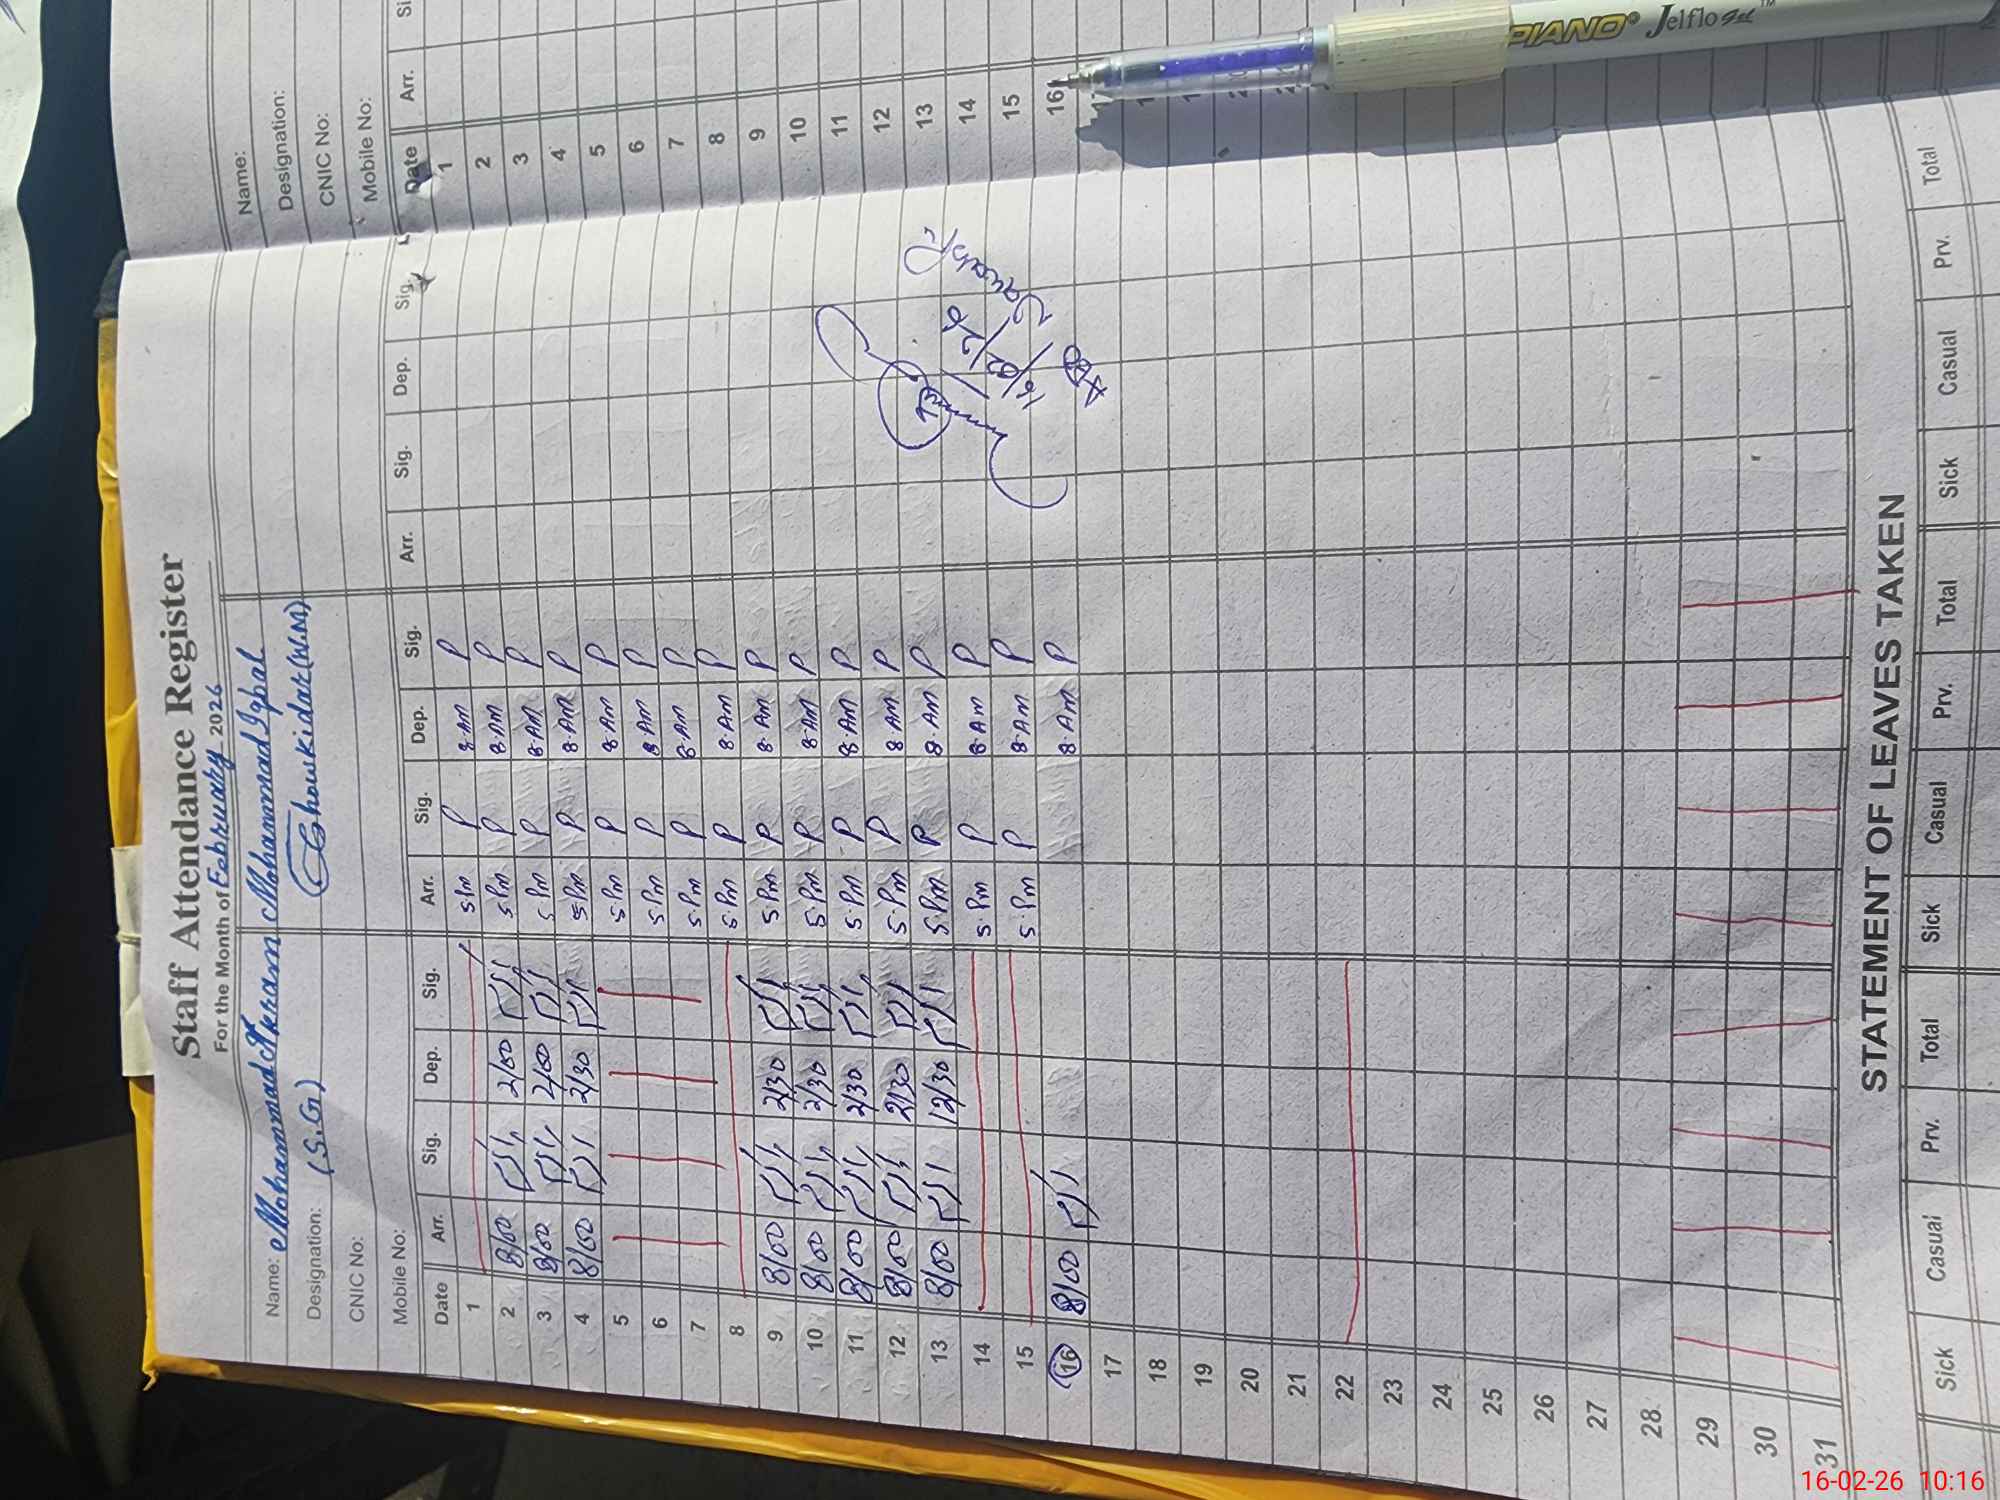 Staff Attendance Register
For the Month of February 2026
Name: Mohammad Akram Mohammad Iqbal
Designation: (S.G) Chowkidar (W.M)
CNIC No:
Mobile No:
Date Arr. Sig. Dep. Sig. Arr. Sig. Dep. Sig. Arr. Sig. Dep. Sig.
1 5 Pm P 8 AM P
2 8/00 2/00 5 Pm P 8 AM P
3 8/00 2/00 5 Pm P 8 AM P
4 8/00 2/30 5 Pm P 8 AM P
5 5 Pm P 8 AM P
6 5 Pm P 8 AM P
7 5 Pm P 8 AM P
8 5 Pm P 8 AM P
9 8/00 2/30 5 Pm P 8 AM P
10 8/00 2/30 5 Pm P 8 AM P
11 8/00 2/30 5 Pm P 8 AM P
12 8/00 2/30 5 Pm P 8 AM P
13 8/00 12/30 5 Pm P 8 AM P
14 5 Pm P 8 AM P
15 5 Pm P 8 AM P
16 8/00 8 AM P
17
18
19
20
21
22
23
24
25
26
27
28
29
30
31
16/02/26
STATEMENT OF LEAVES TAKEN
Sick Casual Prv. Total Sick Casual Prv. Total Sick Casual Prv. Total
Name:
Designation:
CNIC No:
Mobile No:
Date Arr. Si
1
2
3
4
5
6
7
8
9
10
11
12
13
14
15
16
PIANO® Jelflo Gel™
16-02-26 10:16